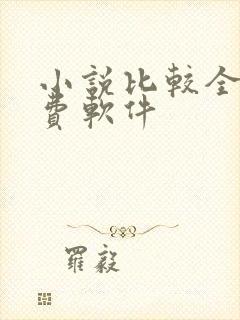 小説比較全
費軟件
羅毅